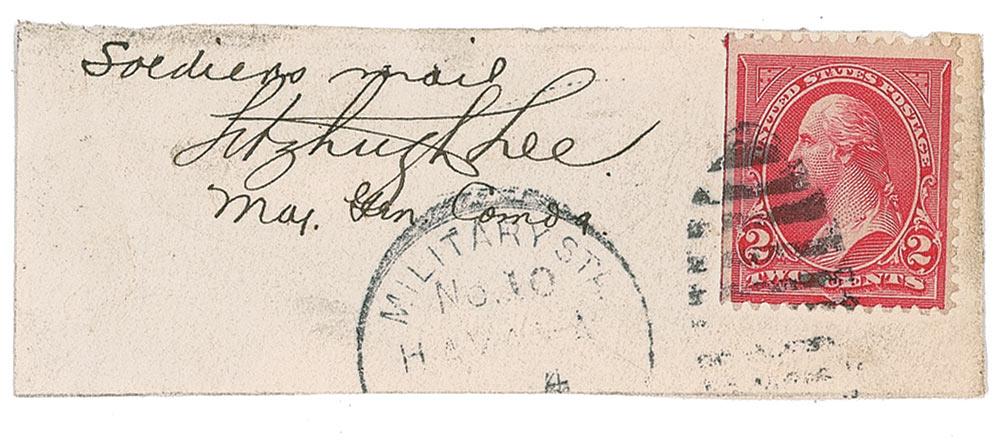 Soldiers mail
Fitzhugh Lee
Maj. Gen. Comdg.
MILITARY STA.
No. 10
HAVANA
UNITED STATES POSTAGE
2 2
TWO CENTS